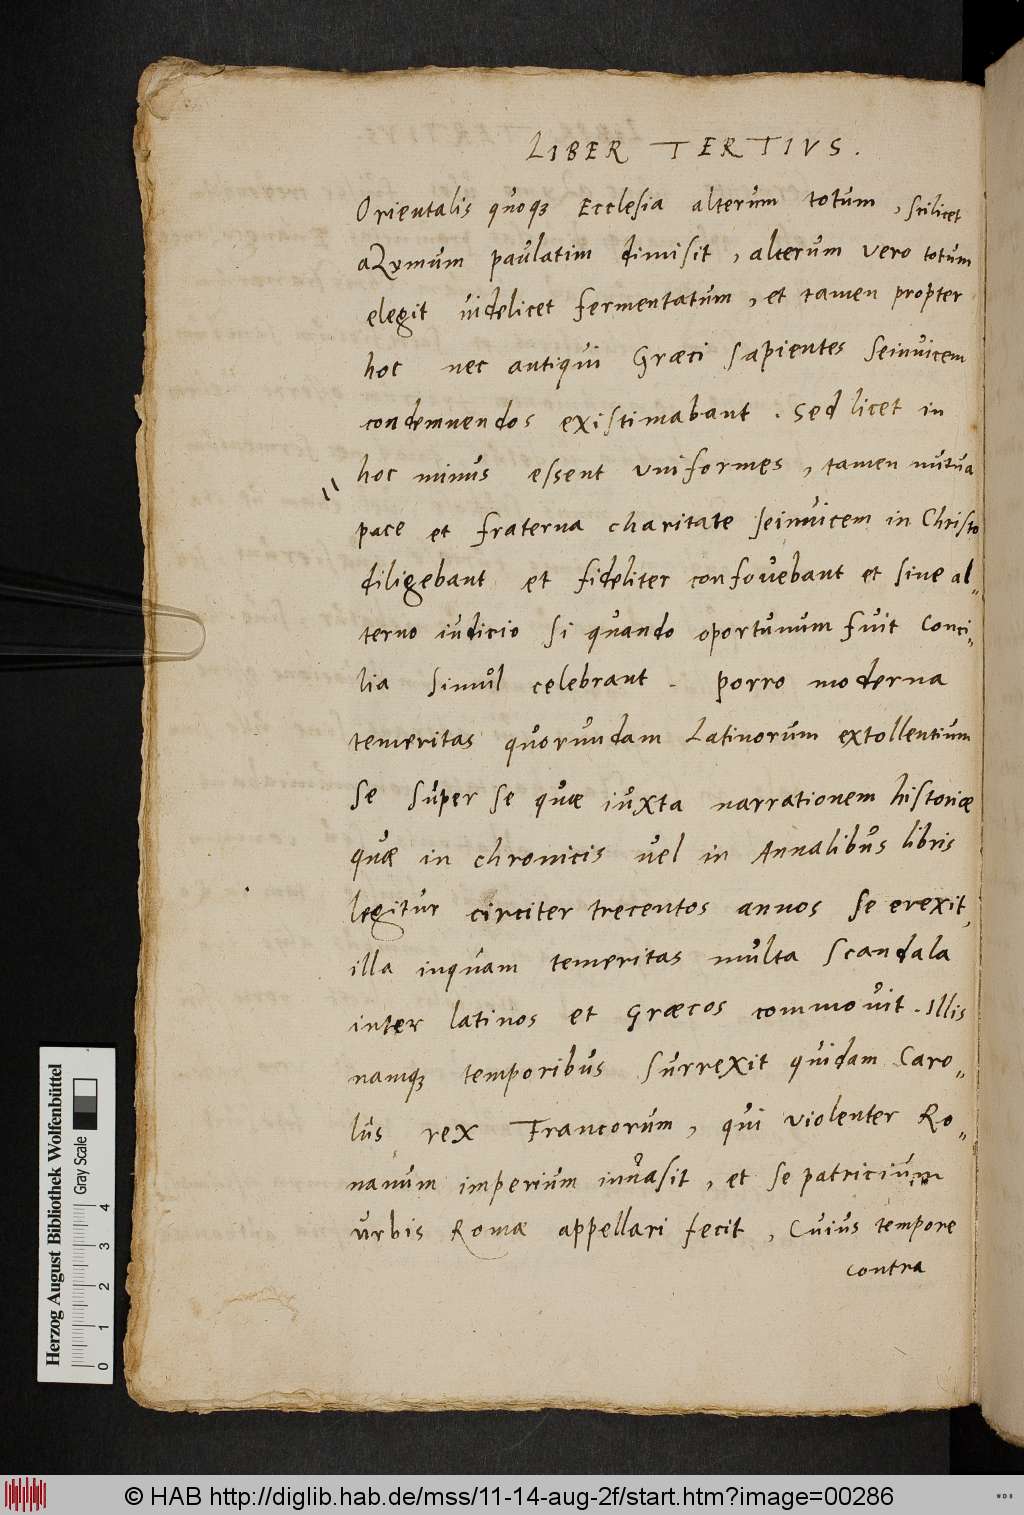 LIBER TERTIVS.
Orientalis quoqꝫ Ecclesia alterum totum, scilicet
aZymum paulatim dimisit, alterum vero totum
elegit videlicet fermentatum, et tamen propter
hoc nec antiqui Græci sapientes seinuicem
condemnendos existimabant. Sed licet in
hoc minus essent vniformes, tamen mutua
pace et fraterna charitate seinuicem in Christo
diligebant et fideliter confouebant et sine al„
terno iudicio si quando oportunum fuit Conci„
lia simul celebrant. porro moderna
temeritas quorundam Latinorum extollentium
se super se quæ iuxta narrationem historiæ
quæ in chronicis vel in Annalibus libris
legitur circiter trecentos annos se erexit,
illa inquam temeritas multa scandala
inter latinos et Græcos commouit. Illis
namqꝫ temporibus surrexit quidam Caro„
lus rex Francorum, qui violenter Ro„
manum imperium inuasit, et se patricium
vrbis Romæ appellari fecit, Cuius tempore
contra
Herzog August Bibliothek Wolfenbüttel
Gray Scale
0 1 2 3 4
© HAB http://diglib.hab.de/mss/11-14-aug-2f/start.htm?image=00286